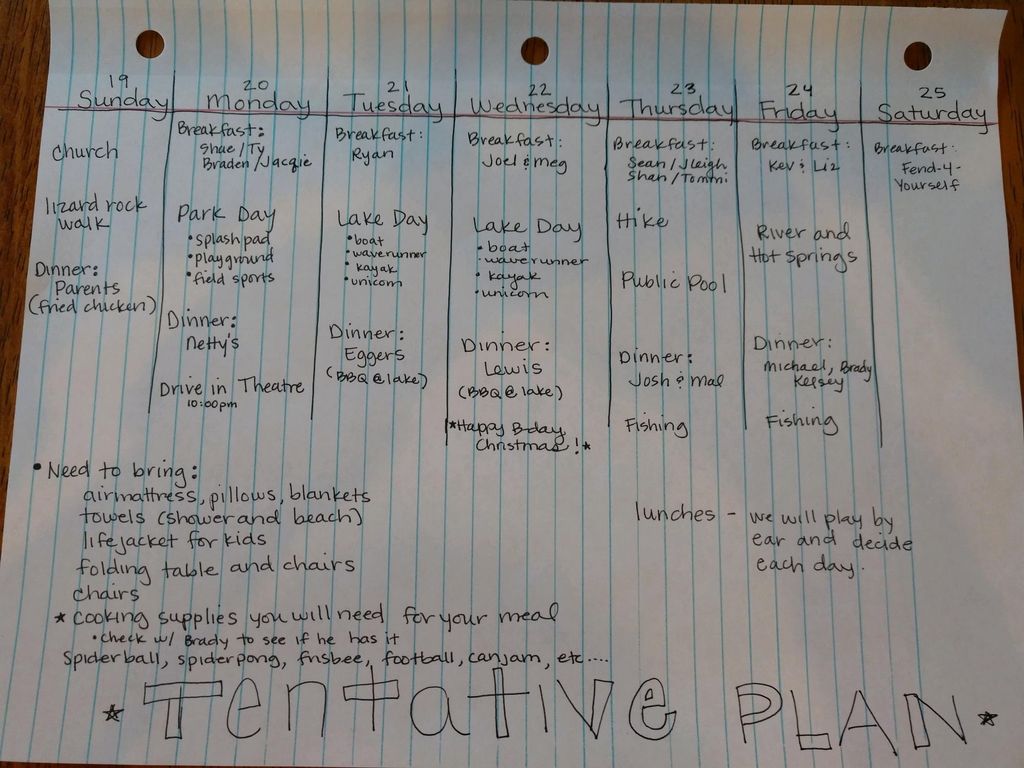 19
Sunday
Church
lizard rock
walk
Dinner:
Parents
(fried chicken)
20
Monday
Breakfast:
Shae/Ty
Braden/Jacqie
Park Day
• splash pad
• playground
• field sports
Dinner:
Netty's
Drive in Theatre
10:00pm
21
Tuesday
Breakfast:
Ryan
Lake Day
• boat
• waverunner
• kayak
• unicorn
Dinner:
Eggers
(BBQ @ lake)
22
Wednesday
Breakfast:
Joel & meg
Lake Day
• boat
• waverunner
• kayak
• unicorn
Dinner:
Lewis
(BBQ @ lake)
*Happy B-day
Christmas!*
23
Thursday
Breakfast:
Sean/Jleigh
Shan/Tommi
Hike
Public Pool
Dinner:
Josh & Mal
Fishing
24
Friday
Breakfast:
Kev & Liz
River and
Hot springs
Dinner:
michael, Brady
Kelsey
Fishing
25
Saturday
Breakfast:
Fend-4-
Yourself
• Need to bring:
airmattress, pillows, blankets
towels (shower and beach)
lifejacket for kids
folding table and chairs
chairs
* cooking supplies you will need for your meal
• check w/ Brady to see if he has it
Spiderball, spiderpong, frisbee, football, canjam, etc....
lunches - we will play by
ear and decide
each day.
* Tentative PLAN *